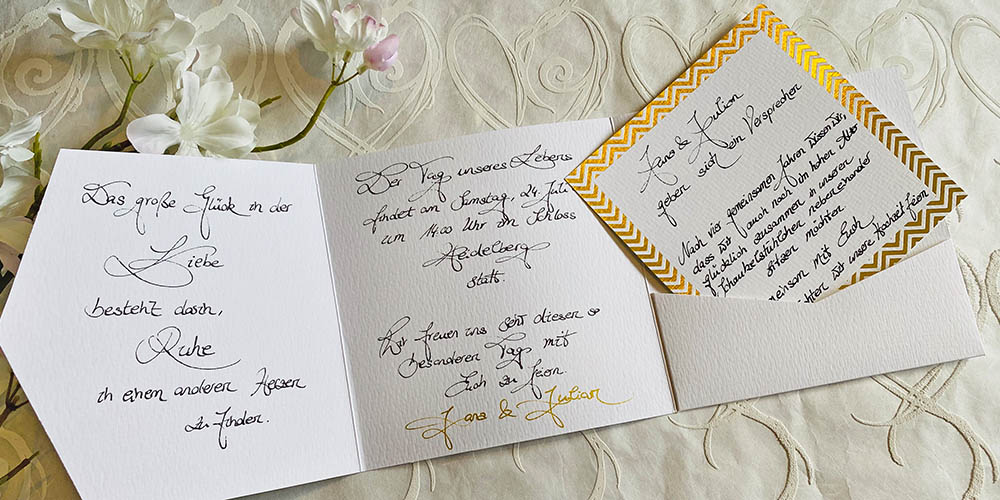 Das große Glück in der
Liebe
besteht darin,
Ruhe
in einem anderen Herzen
zu finden.
Der Tag unseres Lebens
findet am Samstag, 24. Juli
um 14:00 Uhr im Schloss
Heidelberg
statt.
Wir freuen uns sehr diesen so
besonderen Tag mit
Euch zu feiern.
Jana & Julian
Jana & Julian
geben sich ein Versprechen
Nach vier gemeinsamen Jahren wissen wir,
dass wir auch noch im hohen Alter
glücklich zusammen in unseren
Schaukelstühlchen nebeneinander
sitzen möchten.
mit Euch
wir unsere Hochzeit feiern